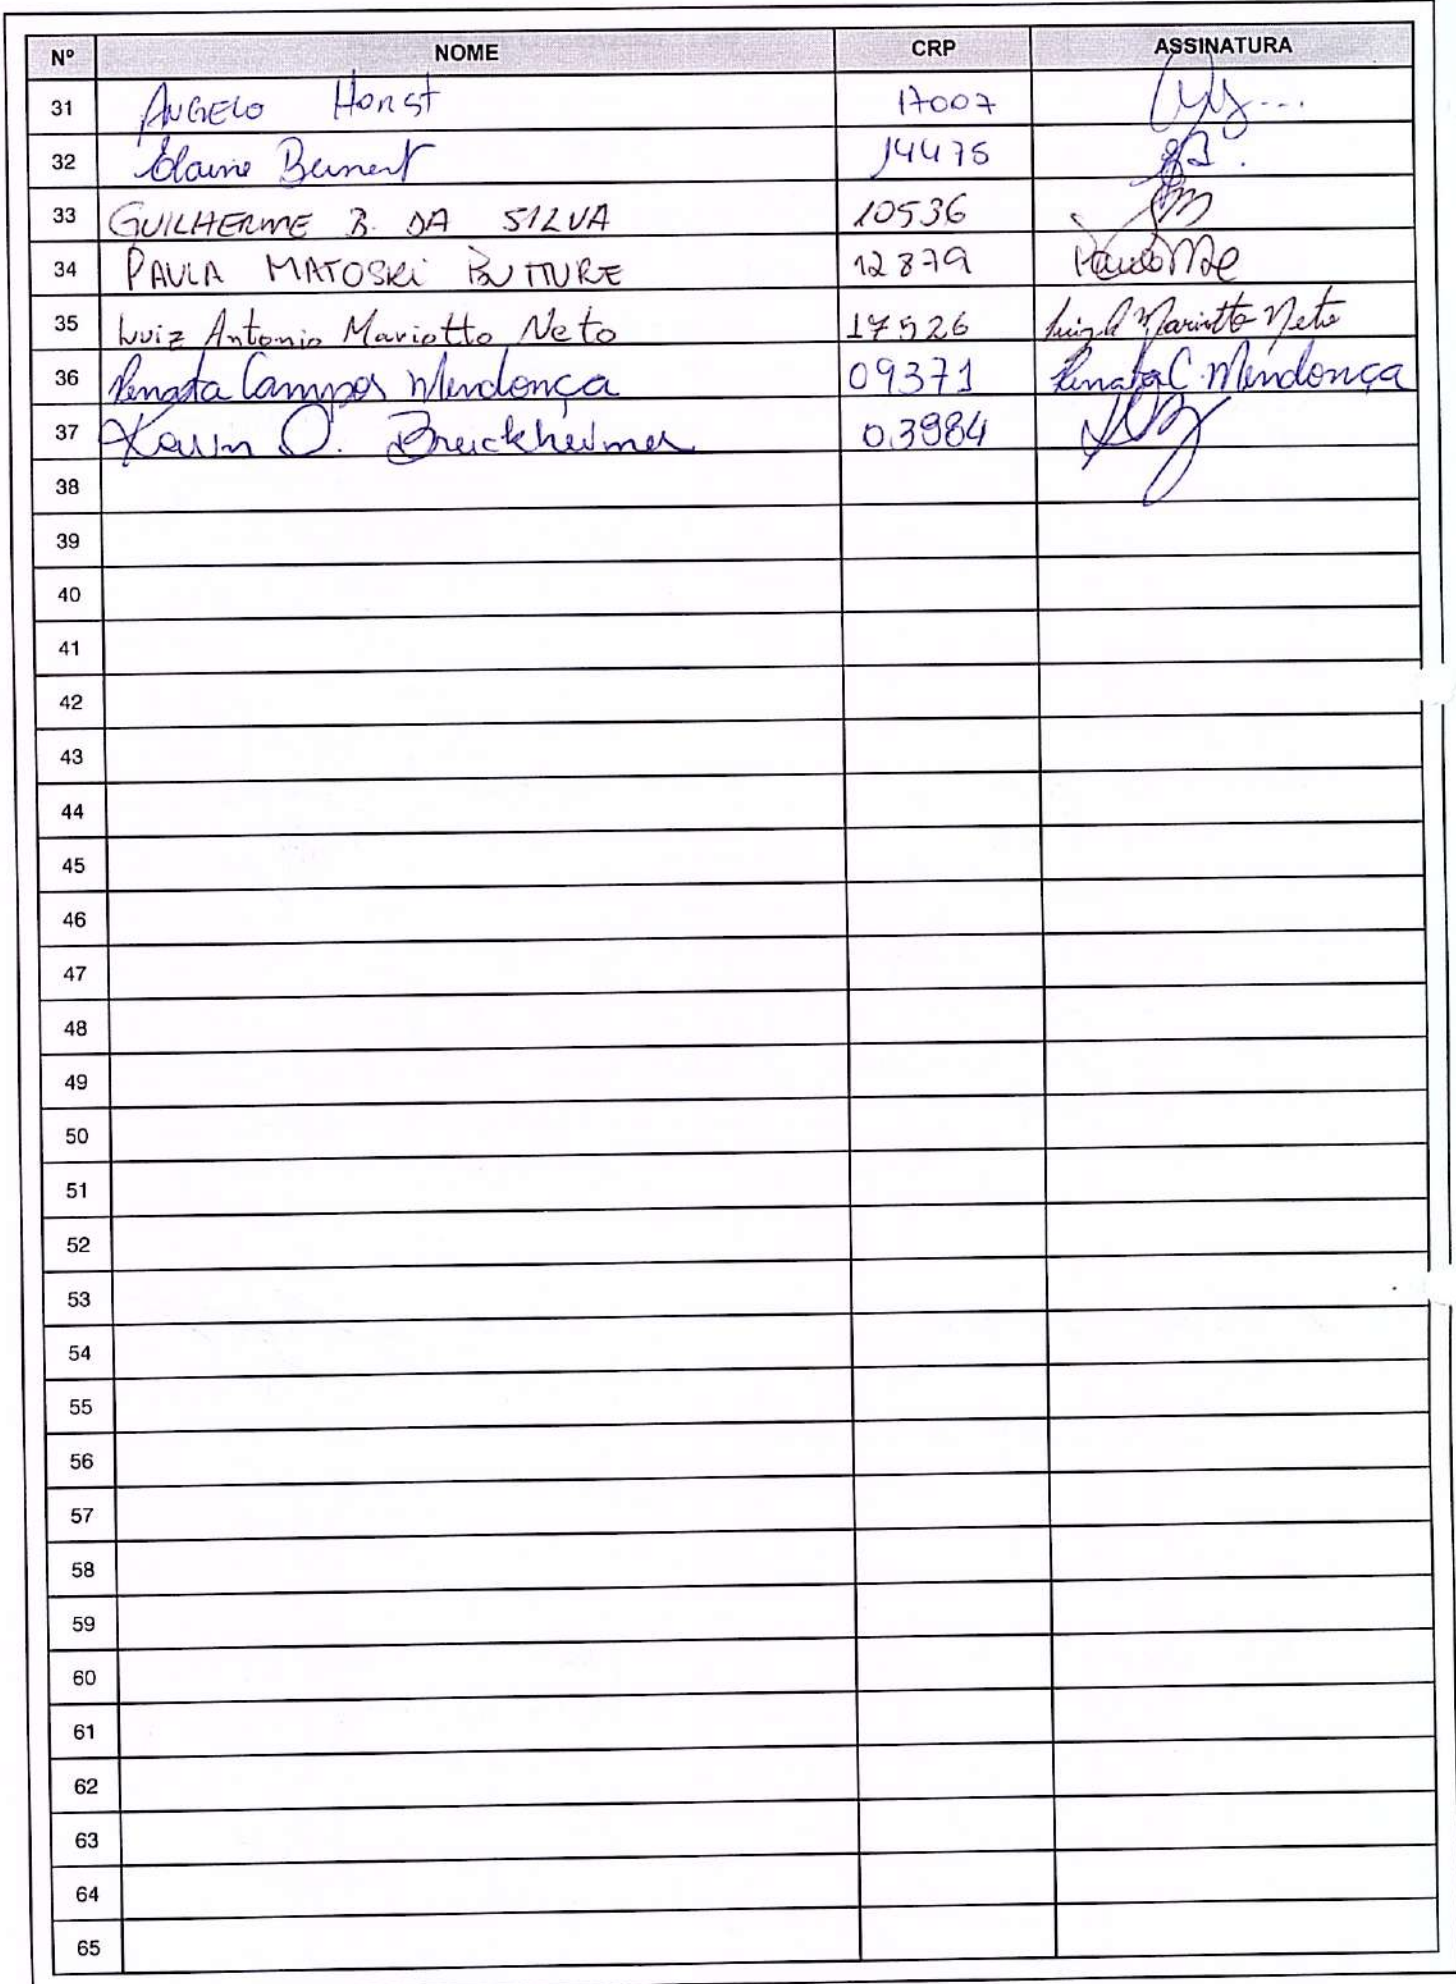 Nº NOME CRP ASSINATURA
31 ANGELO Horst 17007
32 Elaine 14475
33 GUILHERME B. DA SILVA 10536
34 PAULA MATOSKI BUTTURE 12879
35 Luiz Antonio Mariotto Neto 17526 Luiz A Mariotto Neto
36 Renata Campos Mendonça 09371 Renata C. Mendonça
37 Karin O. Bruckheimer 03984
38
39
40
41
42
43
44
45
46
47
48
49
50
51
52
53
54
55
56
57
58
59
60
61
62
63
64
65